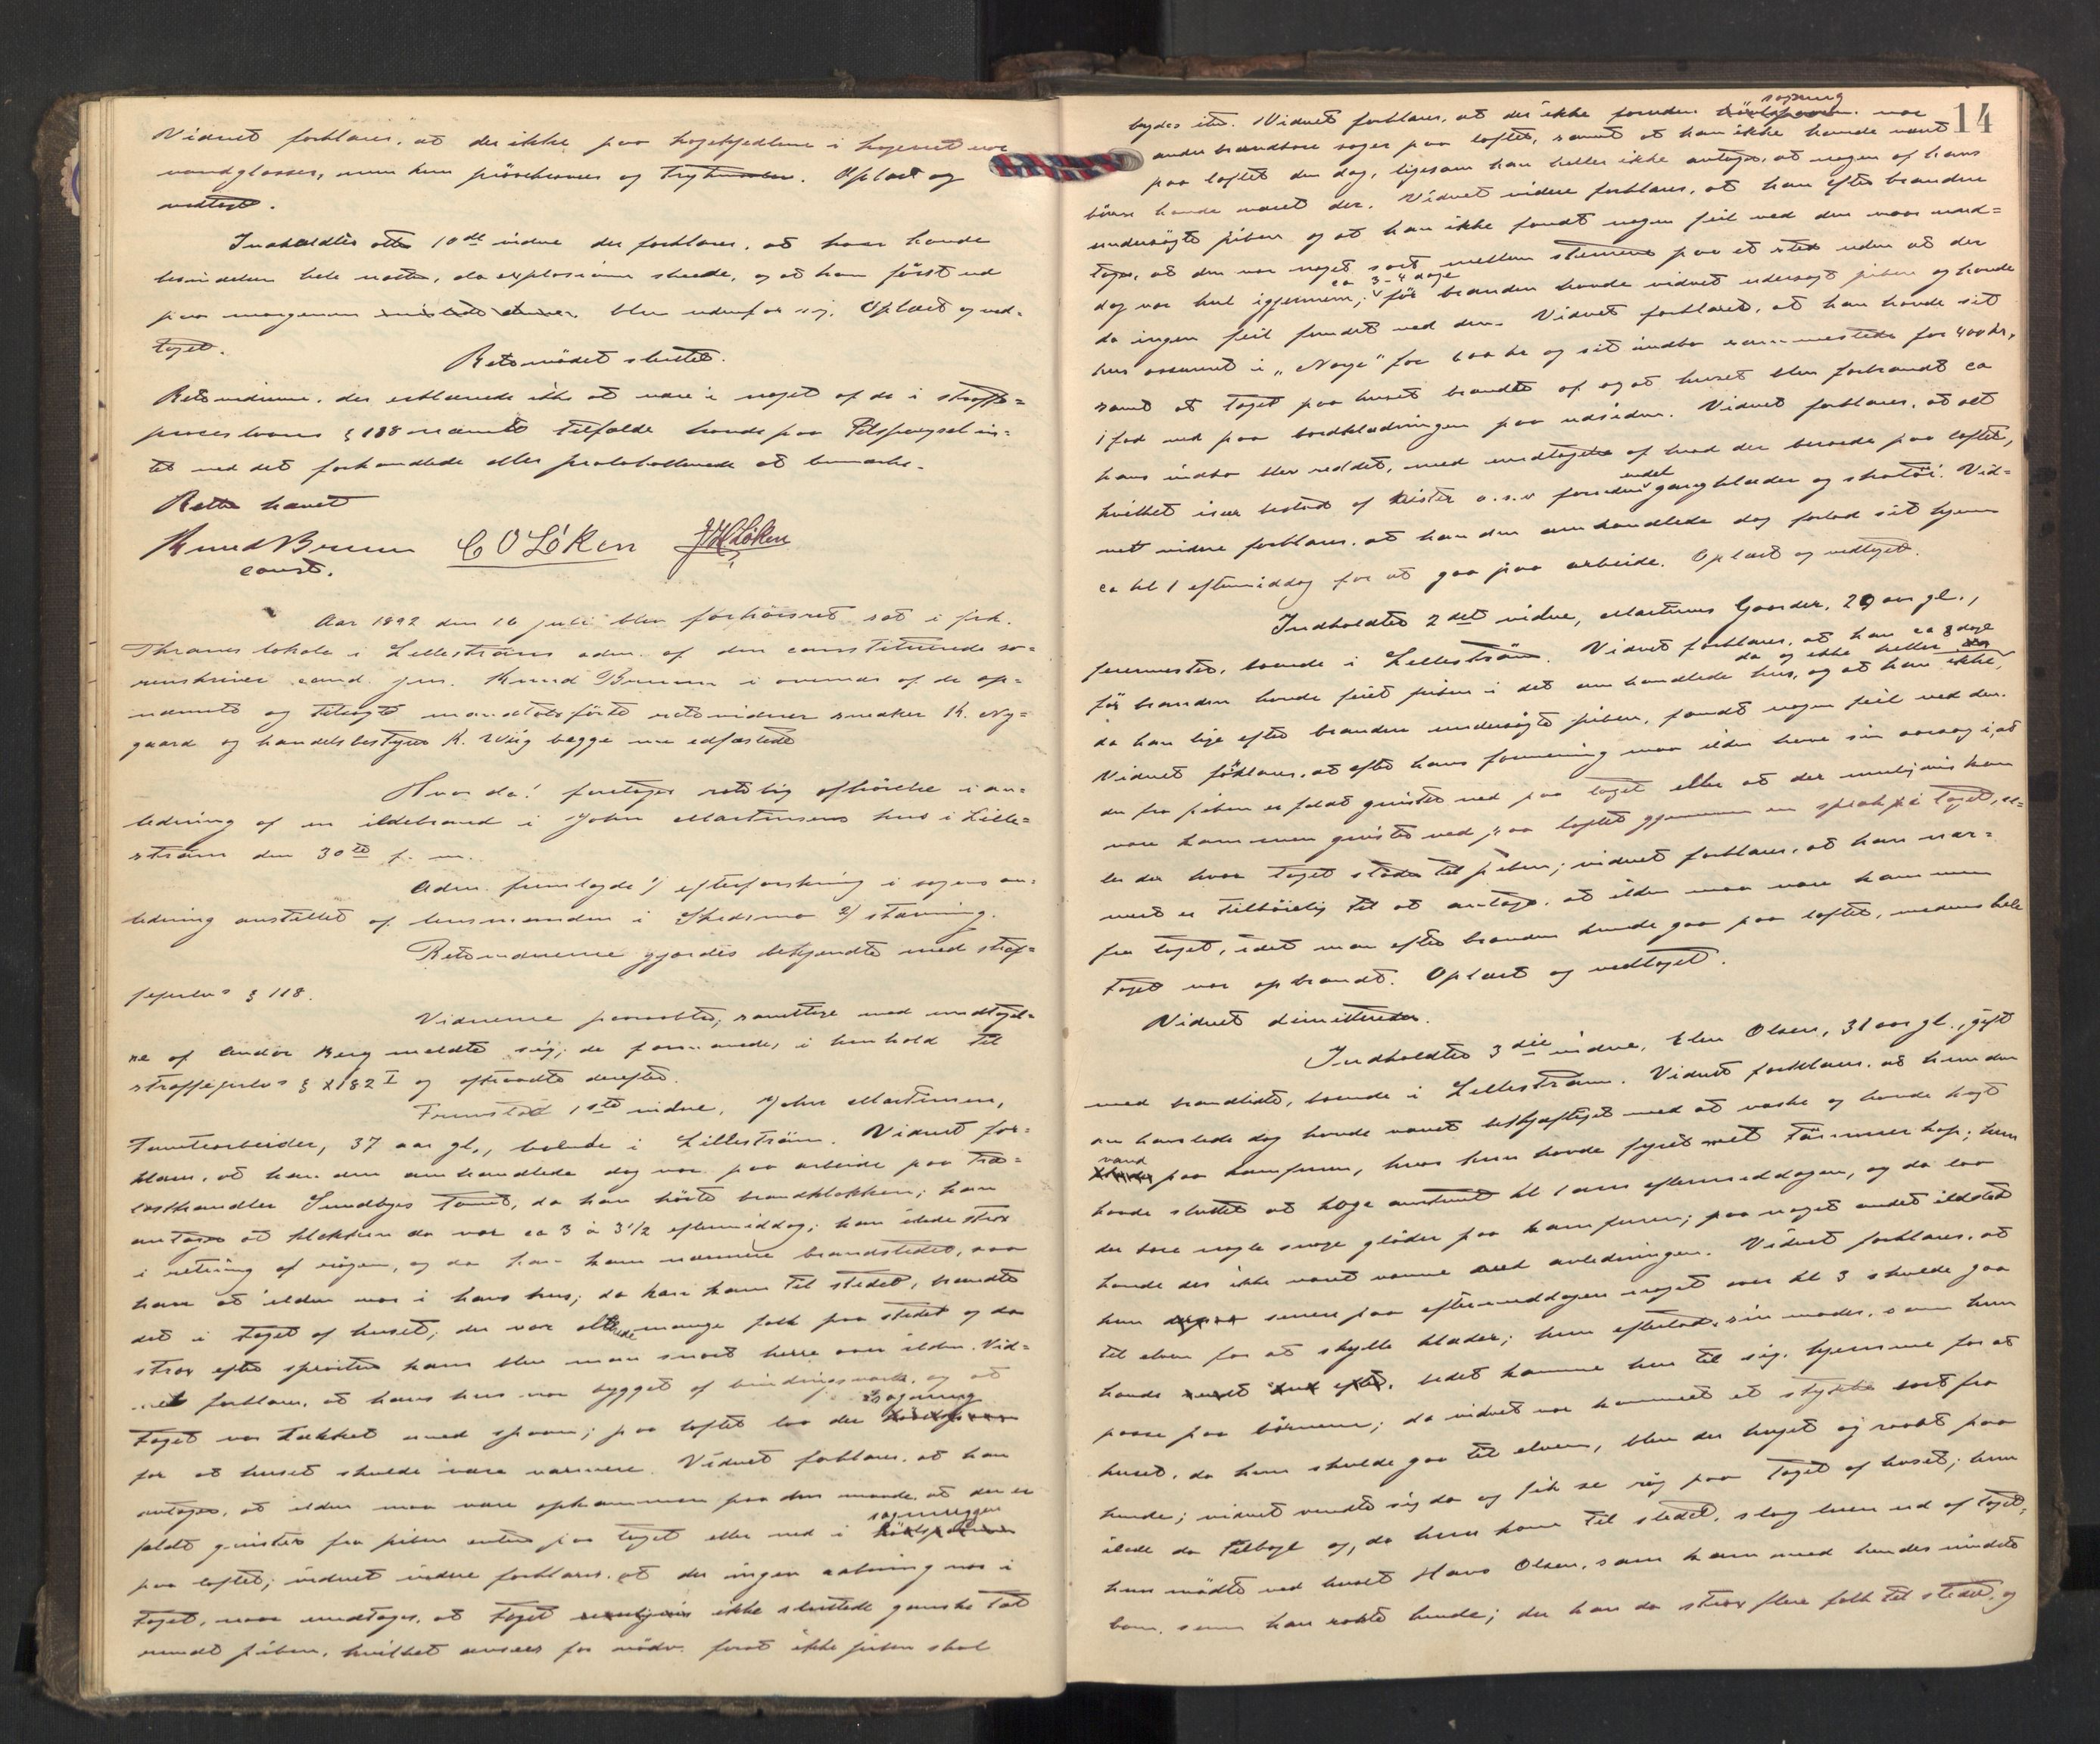 Vidnet forklarer, at der ikke paa kogekjedlerne i kogeriet var
vandglasser, men kun prövekraner og trykmaaler. Oplæst og
vedtaget.
Indkaldtes atter 10de vidne der forklarer, at han havde
hele natten, da explosionen skeede, og at han först ud
paa morgenen blev udenfor sig. Oplæst og ved-
taget.
Retsmödet sluttet.
Retsvidnerne, der erklærede ikke at være i noget af de i straffe-
proceslovens § 188 nævnte tilfælde havde paa tilspörgsel in-
tet ved det forhandlede eller protokollerede at bemærke.
Retten hævet
Knud Bruun C O Löken J H Löken
const.
Aar 1892 den 16 juli blev forhörsret sat i frk.
Thranes lokale i Lilleström adm. af den constituerede so-
renskriver cand. jur. Knud Bruun i overvær af de op-
nævnte og tilsagte mandtalsförte retsvidner snedker K. Ny-
gaard og handelsbestyrer K. Wiig begge nu edfæstede
Hvor da: foretages retslig afhörelse i an-
ledning af en ildebrand i John Martinsens hus i Lille-
ström den 30te f. m.
Adm. fremlagde 1/ efterforskning i sagens an-
ledning anstillet af lensmanden i Skedsmo 2/ stævning.
Retsvidnerne gjordes bekjendte med straf-
feprlvs § 188.
Vidnerne paaraabtes, samtlige med undtagel-
se af Andor Berg meldte sig; de formanedes i henhold til
straffeprlvs § 182 I og aftraadte derefter.
Fremstod 1ste vidne, John Martinsen,
tomtearbeider, 37 aar gl., boende i Lilleström. Vidnet for-
klarer, at han den omhandlede dag var paa arbeide paa træ-
lasthandler Sundbyes tomt, da han hörte brandklokken; han
antager at klokken da var ca 3 à 3 1/2 eftermiddag; han ilede strax
i retning af rögen, og da han kom nærmere brandstedet, saa
han at ilden var i hans hus; da han kom til stedet, brændte
det i taget af huset; der var allerede mange folk paa stedet og da
strax efter spröiten kom blev man snart herre over ilden. Vid-
net forklarer, at hans hus var bygget af bindingsværk, og at
sagmug
taget var tækket med spaan; paa loftet laa der
for at huset skulde være varmere. Vidnet forklarer, at han
antager, at ilden maa være opkommen paa den maade, at der er
sagmuggen
faldt gnister fra piben enten paa taget eller ned i
paa loftet; vidnet videre forklarer, at der ingen aabning var i
taget, naar undtages, at taget ikke sluttede ganske tæt
rundt piben, hvilket ansees for nödv. forat ikke piben skal
14
sagmug
brydes itu. Vidnet forklarer, at der ikke foruden var
andre brændbare sager paa loftet, samt at han ikke havde været
paa loftet den dag, ligesom han heller ikke antager, at nogen af hans
börn havde været der. Vidnet videre forklarer, at han efter branden
undersögte piben og at han ikke fandt nogen feil ved den naar und-
tages, at den var noget sort mellem stenene paa et sted uden at der
ca 3-4 dage
dog var hul igjennem; för branden havde vidnet undersögt piben og havde
da ingen feil fundet ved den. Vidnet forklarer, at han havde sit
hus assureret i „Norge" for kr og sit indbo sammesteds for 400 kr,
samt at taget paa huset brændte af og at huset blev forbrændt ca
1 fod ned paa bordklædningen paa udsiden. Vidnet forklarer, at alt
hans indbo blev reddet, med undtagelse af hvad der beroede paa loftet,
hvilket især bestod af kister o. s. v. foruden endel gangklæder og skotöi. Vid-
net videre forklarer, at han den omhandlede dag forlod sit hjem
ca kl 1 eftermiddag for at gaa paa arbeide. Oplæst og vedtaget.
Indkaldtes 2det vidne, Martinus Gaarder, 29 aar gl.,
feiermester, boende i Lilleström. Vidnet forklarer, at han ca 8 dage
för branden havde feiet piben i det omhandlede hus, og at han ikke da og ikke heller
da han lige efter branden undersögte piben, fandt nogen feil ved den.
Vidnet forklarer, at efter hans formening maa ilden have sin aarsag i, at
der fra piben er faldt gnister ned paa taget eller at der muligvis kan
være kommen gnister ned paa loftet gjennem en spræk på taget, el-
ler der hvor taget stöder til piben; vidnet forklarer, at han nær-
mest er tilböielig til at antage, at ilden maa være kommen
fra taget, idet man efter branden kunde gaa paa loftet, medens hele
taget var opbrændt. Oplæst og vedtaget.
Vidnet dimitteredes.
Indkaldtes 3die vidne, Elen Olsen, 31 aar gl., gift
med brandlidte, boende i Lilleström. Vidnet forklarer, at hun den
omhandlede dag havde været beskjæftiget med at vaske og havde kogt
vand paa komfuren, hvor hun havde fyret med hap; hun
havde sluttet at koge omtrent kl 1 om eftermiddagen, og da laa
der bare nogle svage glöder paa komfuren; paa noget andet ildsted
havde der ikke været varme anledningen. Vidnet forklarer, at
hun senere paa eftermiddagen noget over kl 3 skulde gaa
til elven for at skylle klæder; hun efterlod sin moder, som hun
havde bedet komme hen til sig, hjemme for at
passe paa börnene; da vidnet var kommet et stykke bort fra
huset, da hun skulde gaa til elven, blev der hujet og raabt paa
hende; vidnet vendte sig da og fik se rög paa taget af huset; hun
ilede da tilbage og, da hun kom til stedet, slog luen ud af taget;
hun mödte ved huset Hans Olsen, som kom med hendes mindste
barn, som han rakte hende; der kom da strax flere folk til stedet, og